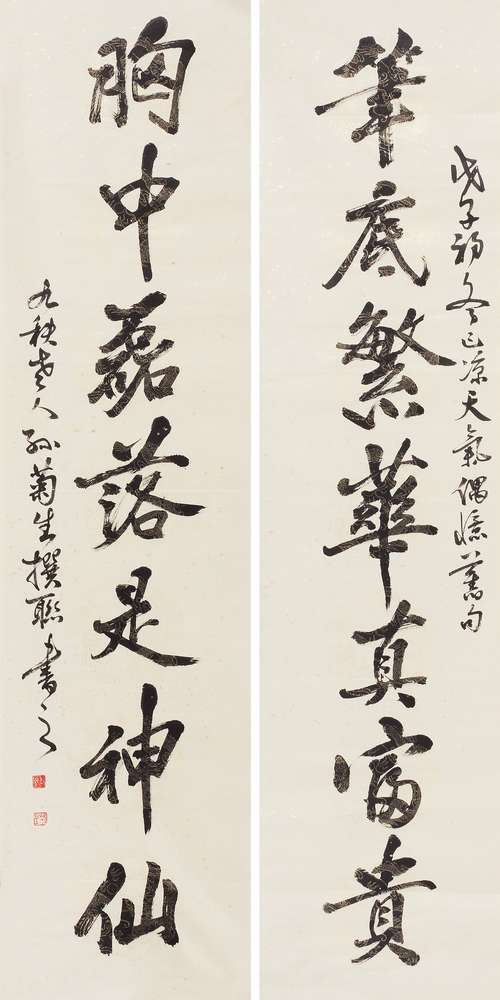 戊子初冬已凉天氣偶憶舊句
筆底繁華真富貴
胸中磊落是神仙
九秩老人孫菊生撰聯書之